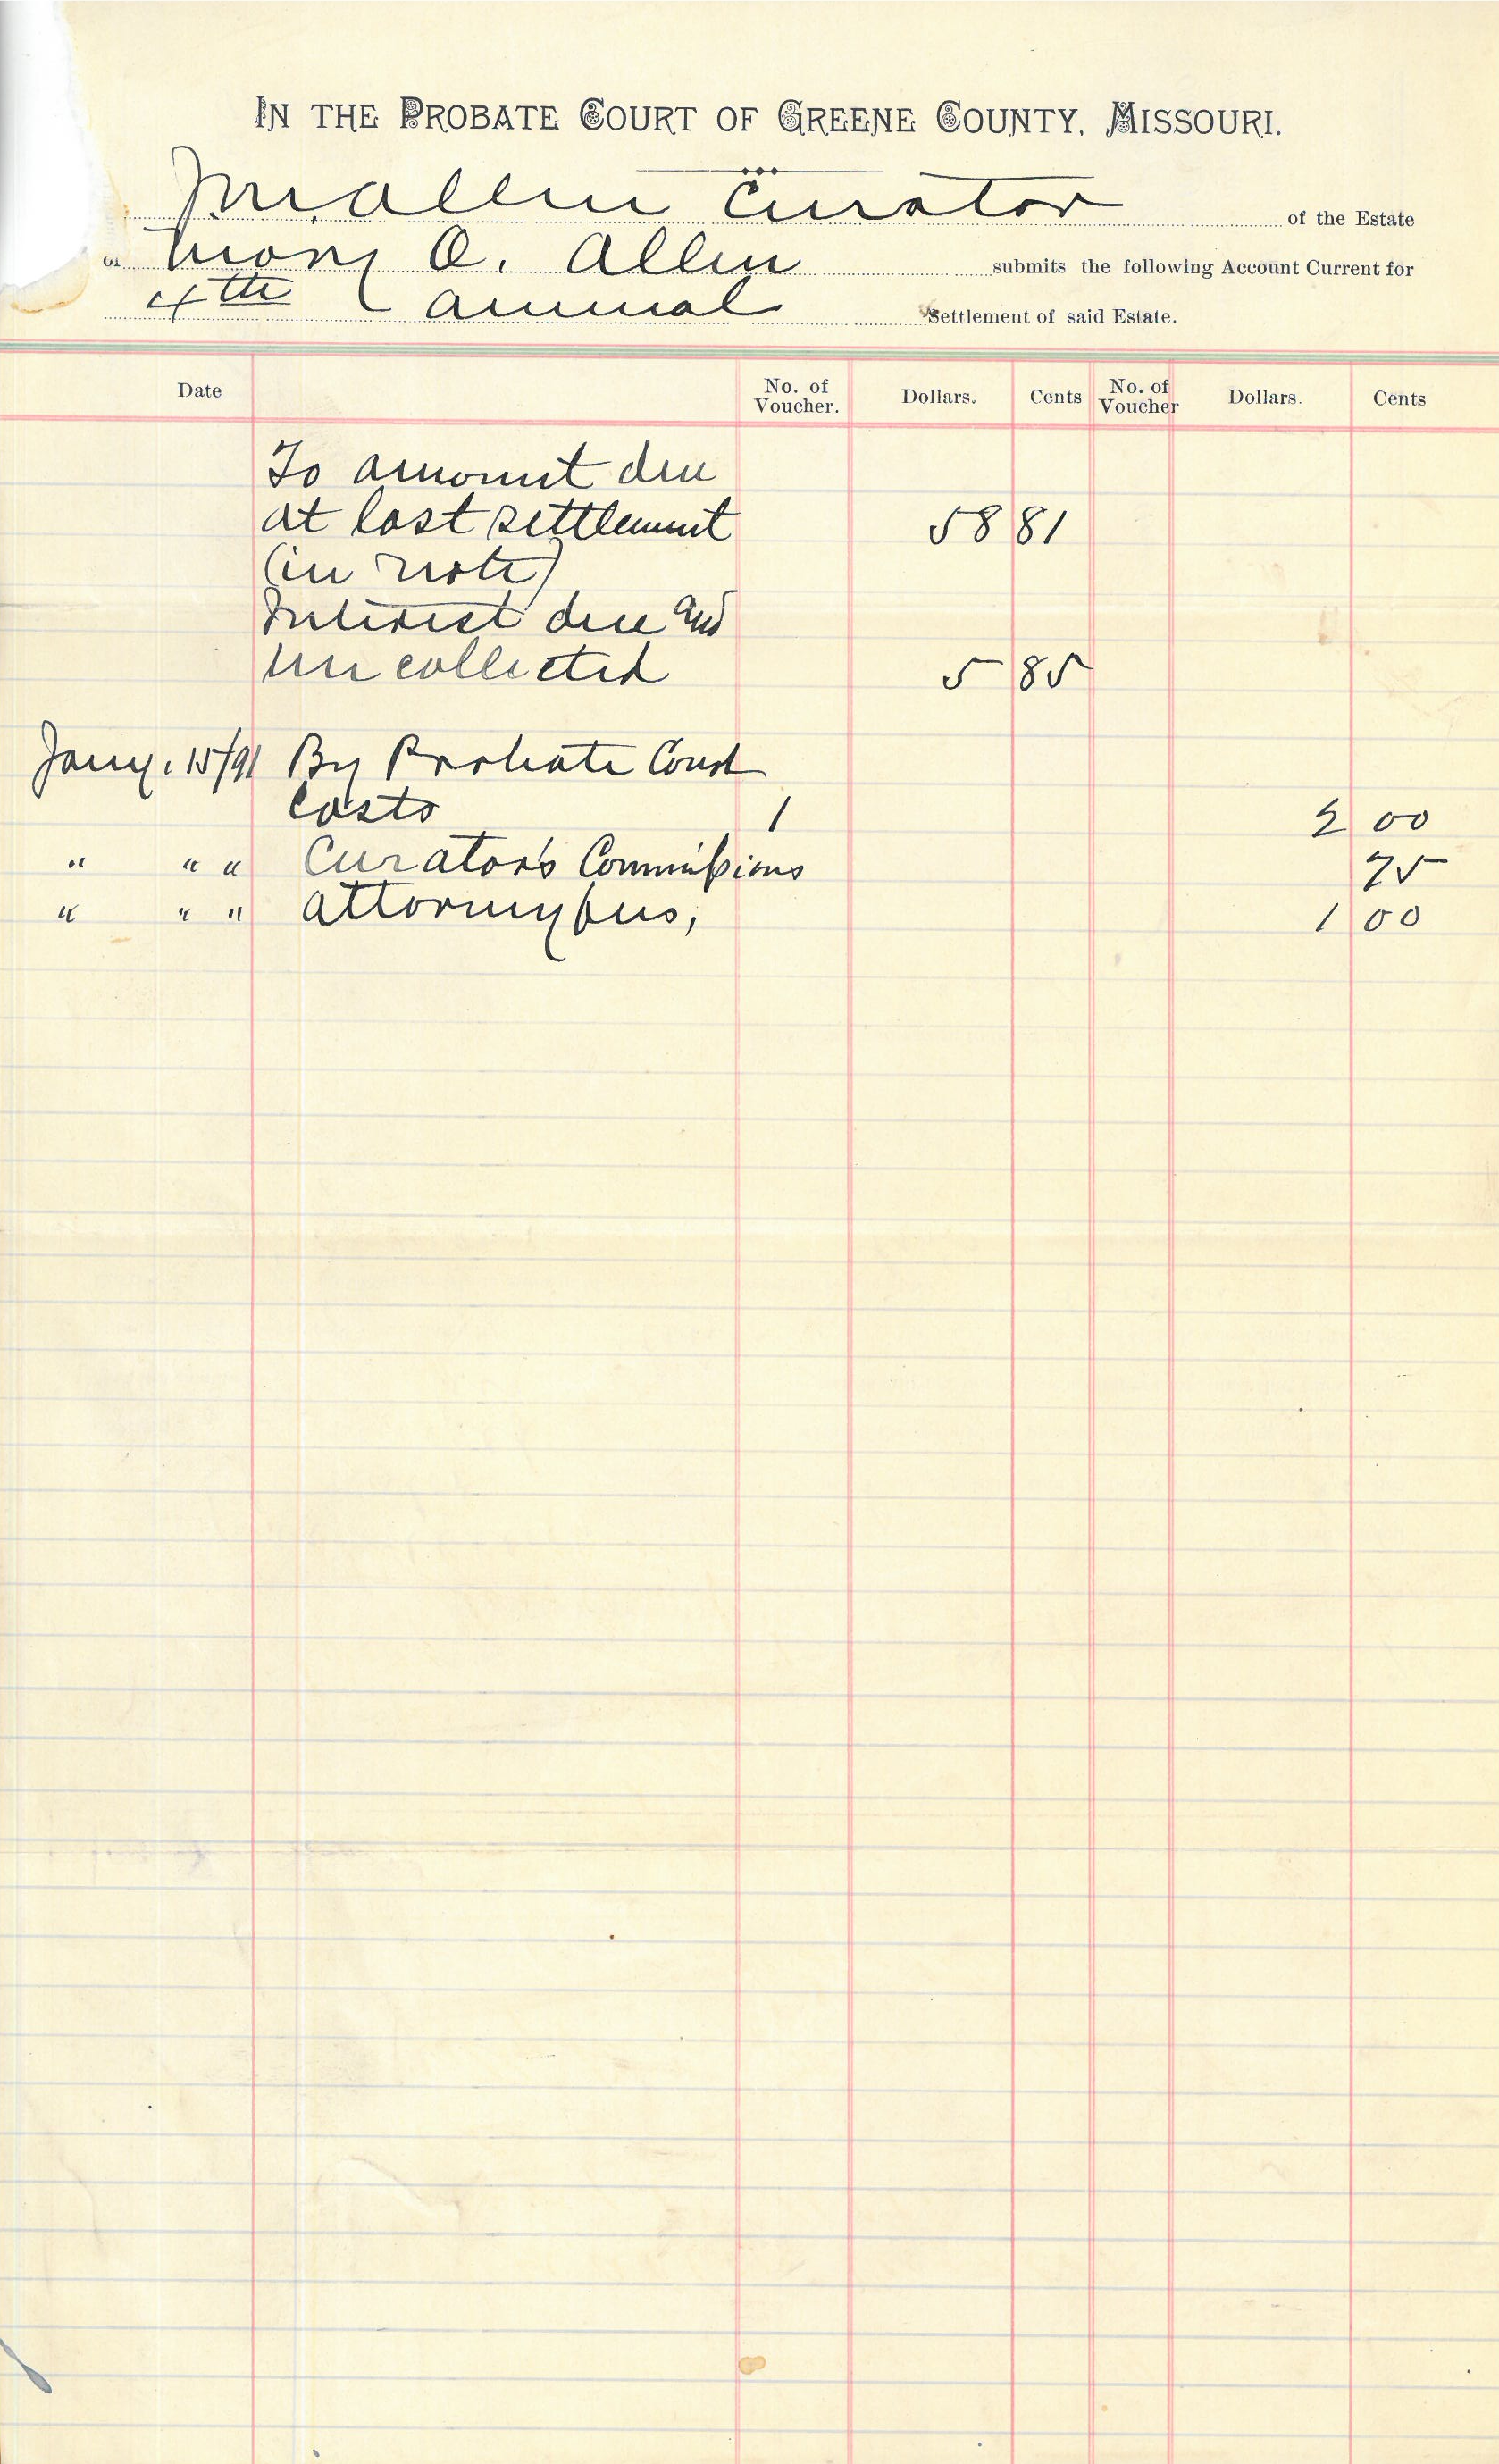 IN THE PROBATE COURT OF GREENE COUNTY, MISSOURI.
J. M. Allen Curator of the Estate
of Mary O. Allen submits the following Account Current for
4th annual Settlement of said Estate.
Date No. of Voucher. Dollars. Cents No. of Voucher Dollars. Cents
To amount due
at last settlement 58 81
(in note)
Interest due and
uncollected 5 85
Jany. 15/91 By Probate Court
Costs 1 2 00
" " " Curator's Commissions 75
" " " Attorney fees, 1 00